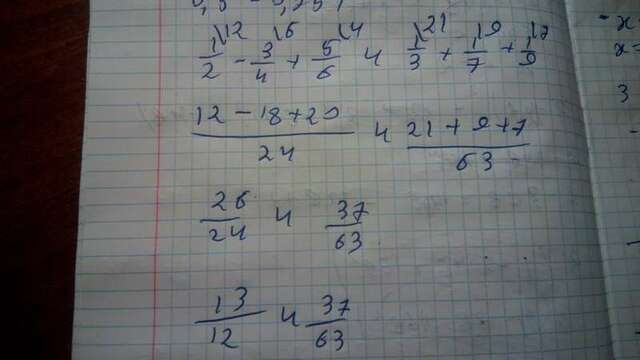 1/2 \12 - 3/4 \6 + 5/6 \4 и 1/3 \21 + 1/7 \9 + 1/9 \7
(12 - 18 + 20)/24 и (21 + 9 + 7)/63
26/24 и 37/63
13/12 и 37/63
- x
x =
3